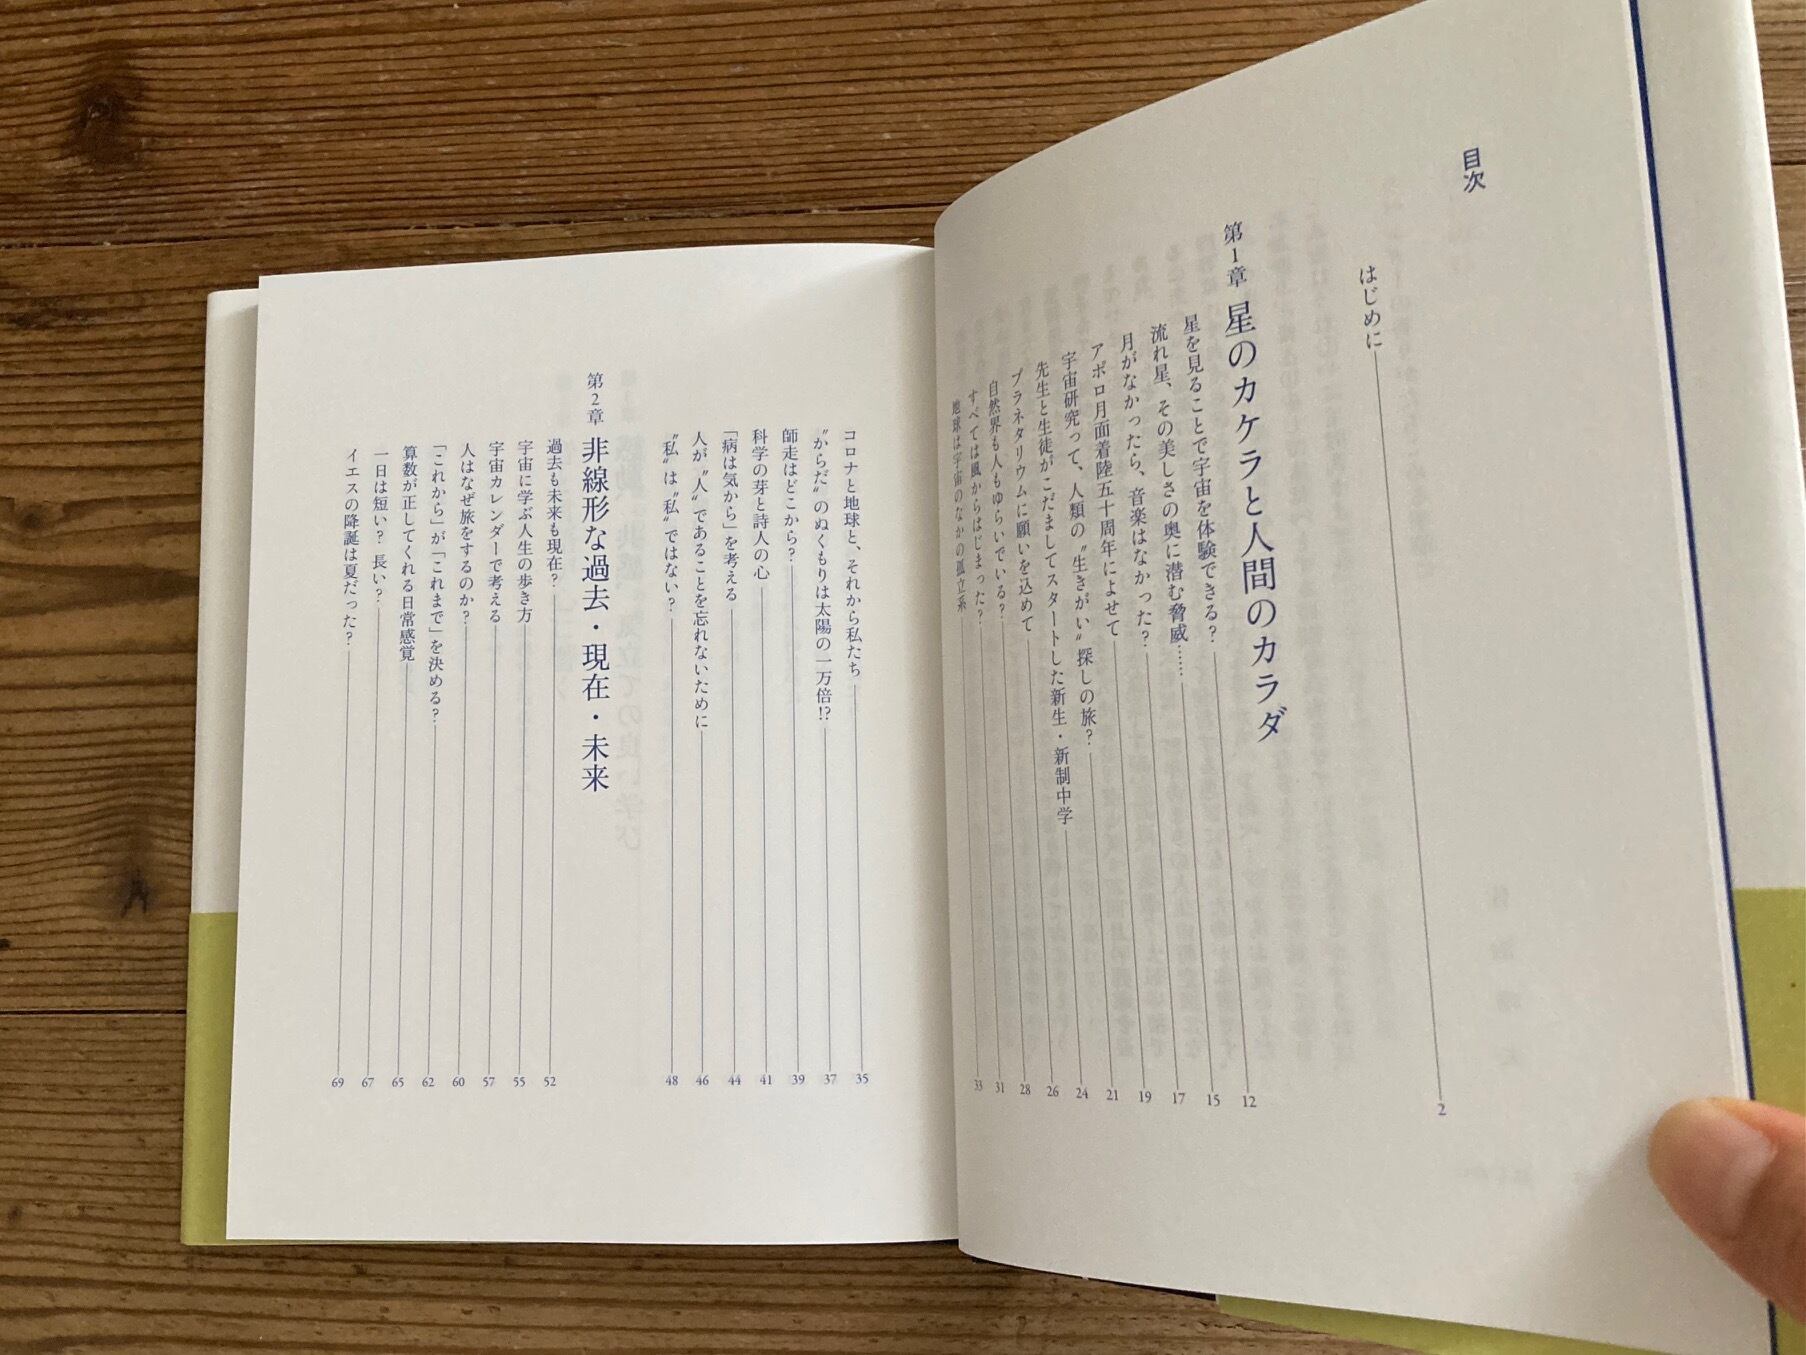 目次
はじめに 2
第1章 星のカケラと人間のカラダ
星を見ることで宇宙を体験できる? 12
流れ星、その美しさの奥に潜む脅威…… 15
月がなかったら、音楽はなかった? 17
アポロ月面着陸五十周年によせて 19
宇宙研究って、人類の〝生きがい〟探しの旅? 21
先生と生徒がこだましてスタートした新生・新制中学 24
プラネタリウムに願いを込めて 26
自然界も人もゆらいでいる? 28
すべては風からはじまった? 31
地球は宇宙のなかの孤立系 33
コロナと地球と、それから私たち 35
〝からだ〟のぬくもりは太陽の一万倍!? 37
師走はどこから? 39
科学の芽と詩人の心 41
「病は気から」を考える 44
人が〝人〟であることを忘れないために 46
〝私〟は〝私〟ではない? 48
第2章 非線形な過去・現在・未来
過去も未来も現在? 52
宇宙に学ぶ人生の歩き方 55
宇宙カレンダーで考える 57
人はなぜ旅をするのか? 60
「これから」が「これまで」を決める? 62
算数が正してくれる日常感覚 65
一日は短い? 長い? 67
イエスの降誕は夏だった? 69